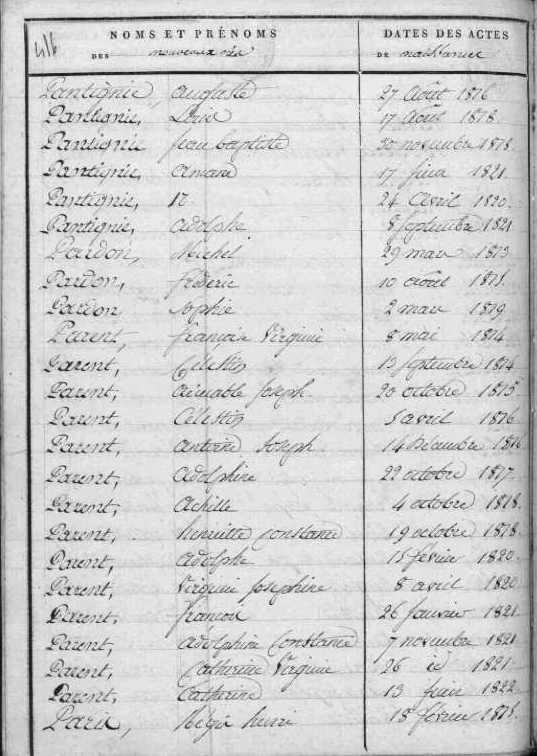 416
NOMS ET PRÉNOMS DATES DES ACTES
DES nouveaux nés DE naissance
Pantignie, auguste 27 Août 1816
Pantignie, Louis 17 Août 1818
Pantignie jean baptiste 20 novembre 1818.
Pantignie, amand 17 juin 1821.
Pantignie, 24 avril 1820.
Pantignie, adolphe 8 septembre 1821
Pardon, Michel 29 mars 1813
Pardon, frédéric 10 août 1815.
Pardon, Sophie 2 mars 1819
Parent, françois Virginie 8 mai 1814
Parent, Célestin 13 septembre 1814
Parent, aimable Joseph 20 octobre 1815
Parent, Célestin 5 avril 1816
Parent, antoine Joseph 14 Décembre 1816
Parent, Adolphine 22 octobre 1817.
Parent, Achille 4 octobre 1818.
Parent, henriette Constance 19 octobre 1818.
Parent, Adolphe 15 février 1820.
Parent, Virginie Josephine 8 avril 1820
Parent, françois 26 janvier 1821
Parent, adolphine Constance 7 novembre 1821
Parent, Catherine Virginie 26 id 1821
Parent, Catherine 13 juin 1822
Paris, henri 18 février 1815.